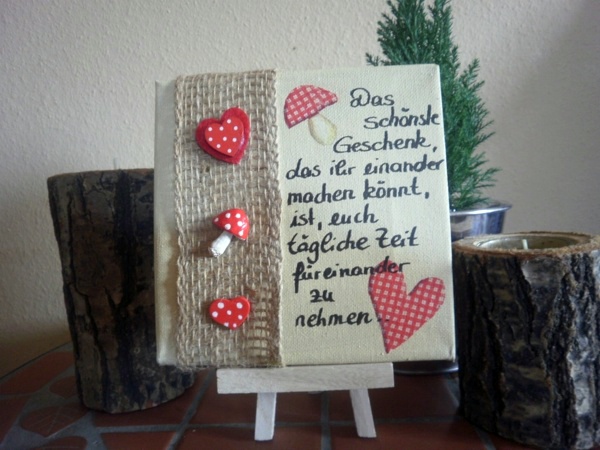 Das
schönste
Geschenk,
das ihr einander
machen könnt,
ist, euch
tägliche Zeit
füreinander
zu
nehmen..